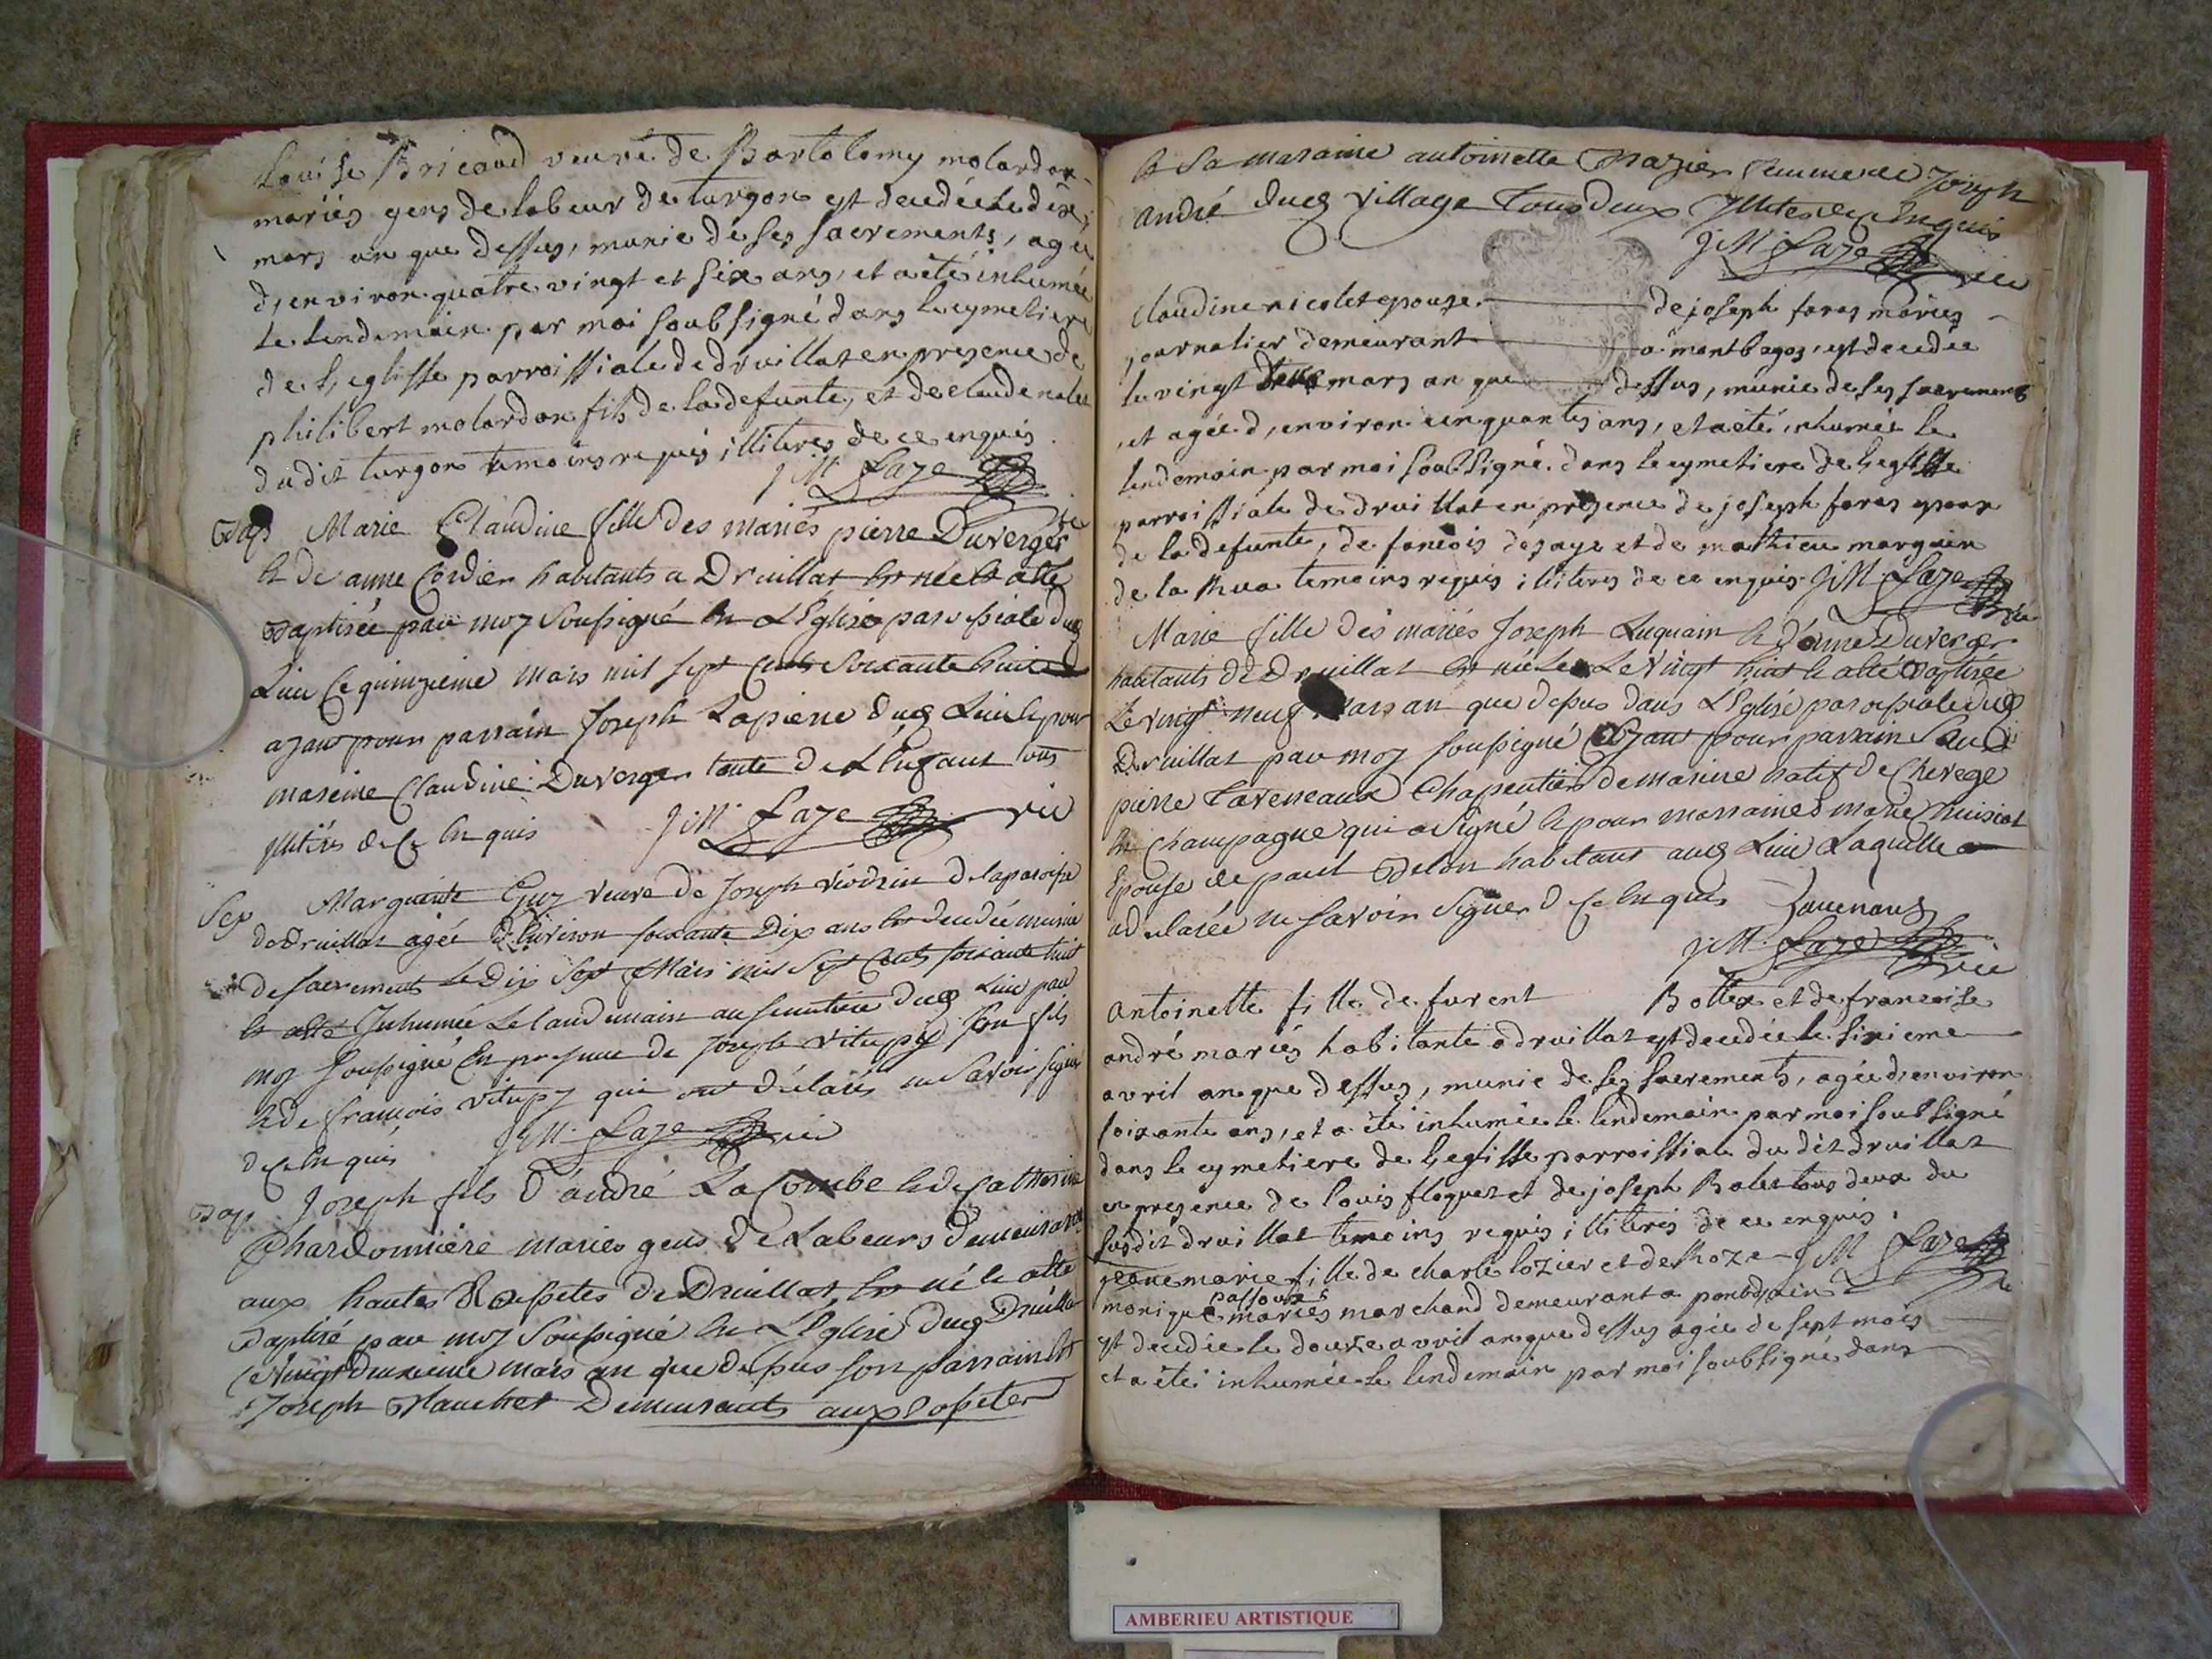 Louise Bricaud veuve de Bartolomy molardon
mariés gens de labeur de turgon est decedée le dix
mars an que dessus, munie de ses sacrements, agée
d'environ quatre vingt et six ans, et a été inhumée
le lendemain par moi soubsigné dans le cymetiere
de l'eglisse parroissiale de druillat en presence de
philibert molardon fils de la defunte, et de claude
dudit turgon temoins requis illiteres de ce enquis
J M Faze
Bap Marie Claudine fille des mariés pierre Duverger
& de anne Cordier habitants a Druillat est née & a été
Baptisée par moy Soussigné en L'Eglise paroissiale dud
Lieu Ce quinzieme mars mil sept cents Soixante huit
ayant pour parrain Joseph Lapierre dud Lieu & pour
mareine Claudine Duverger tante de L'enfant tous
illiteres de Ce Enquis J M Faze vic
Sep Marguerite Guy veuve de Joseph de la paroisse
de Druillat agée d'Environ soixante Dix ans est decedée munie
de sacrements Le Dix Sept Mars mil Sept Cents soixante huit
& a été Inhumée Le landemain au semetiere dud Lieu par
moy Soussigné En presence de Joseph vitupy son fils
& de francois vitupy qui ont déclarés ne Savoir signer
de Ce Enquis J M Faze vic
Bap Joseph fils d'andré La Combe & de Catherine
Chardonniere mariés gens de Labeurs demeurants
aux hautes de Druillat, est né & a été
Baptisé par moy Soussigné en L'Eglise dud Druillat
Ce vingt deuxieme mars an que dessus son parrain est
Joseph Demeurants aux
& Sa maraine antoinette femme de Joseph
andré dud village Tous Deux Illiteres de Ce Enquis
J M Faze vic
Claudine nicolet epouze de joseph faras mariés
journalier demeurant a montbagoz, est decedée
le vingt mars an que dessus, munie de ses sacrements
, et agée d'environ cinquantes ans, et a été inhumée le
lendemain par moi soubsigné dans le cymetiere de l'eglisse
parroissiale de druillat en presence de joseph faras epoux
de la defunte, de et de mathieu marguin
de la temoins requis illiteres de ce enquis J M Faze
Marie fille des mariés Joseph Luquain & d'anne Duverger
habitants de Druillat est née Le vingt huit & a été Baptisée
Le vingt neuf mars an que dessus dans L'Eglise paroissiale dud
Druillat par moy soussigné Ayant pour parrain
pierre Chapentier de marine natif de
en Champagne qui a Signé & pour marraine marie
Epouse de paul habitant aud Lieu Laquelle a
adeclarée ne savoir signer de Ce Enquis
J M Faze vic
Antoinette fille de furent Bottex et de francoise
andré mariés habitante a druillat est decedée le sixieme
avril an que dessus, munie de ses sacrements, agée d'environ
soixante ans, et a été inhumée le lendemain par moi soubsigné
dans le cymetiere de l'eglisse parroissiale du dit druillat
en presence de louis floquet et de joseph Bolet tous deux du
susdit druillat temoins requis illiteres de ce enquis.
jeanemarie fille de charle lozier et de Roze J M Faze
passoux
monique mariés marchand demeurant a pontdain
est decedée le douze avril an que dessus agée de sept mois
et a été inhumée le lendemain par moi soubsigné dans
AMBERIEU ARTISTIQUE